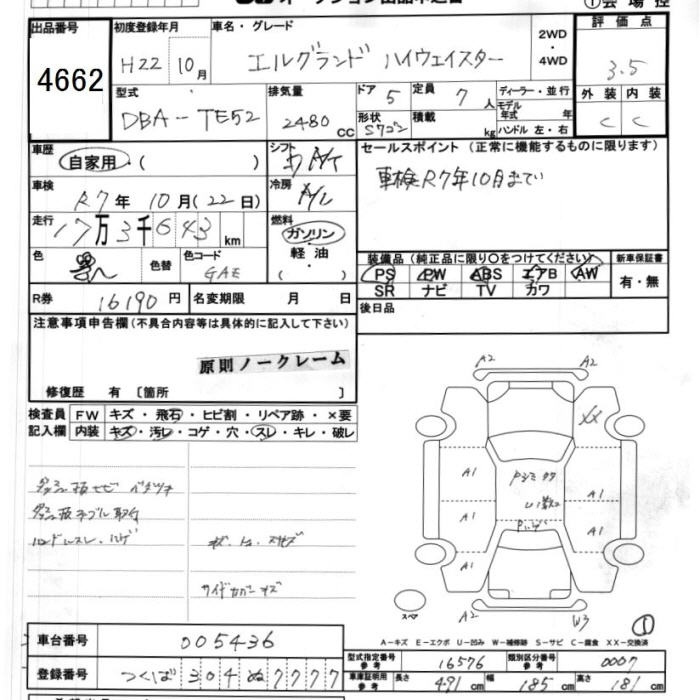 出品番号
4662
初度登録年月
H22 10月
車名・グレード
エルグランド ハイウェイスター
2WD・4WD
評価点
3.5
外装 内装
C C
型式
DBA-TE52
排気量
2480 CC
ドア 5
形状 S7ゴン
定員 7人
積載 kg
ディーラー・並行
モデル年式 年
ハンドル 左・右
車歴
自家用・( )
車検
R7年 10月(22日)
走行
17万3千643km
色 黒
色替
色コード GAE
シフト
冷房
燃料
ガソリン
軽油・
( )
セールスポイント(正常に機能するものに限ります)
車検R7年10月まで
装備品(純正品に限り〇をつけてください)
PS PW ABS エアB AW
SR ナビ TV カワ
新車保証書
有・無
R券 16190円 名変期限 月 日
後日品
注意事項申告欄(不具合内容等は具体的に記入して下さい)
原則ノークレーム
修復歴 有 〔箇所 〕
検査員記入欄
FW キズ・飛石・ヒビ割・リペア跡・×要
内装 キズ・汚レ・コゲ・穴・スレ・キレ・破レ
ハンドルスレ・ハゲ
A2 A2
XX
A1 A1
A1 A1
A1 A1
スペア
A2 W3
1
A-キズ E-エクボ U-凹み W-補修跡 S-サビ C-腐食 XX-交換済
車台番号 005436
登録番号 つくば 304 ぬ 7777
型式指定番号参考 16576
類別区分番号参考 0007
車庫証明用参考 長さ 491cm 幅 185cm 高さ 181cm